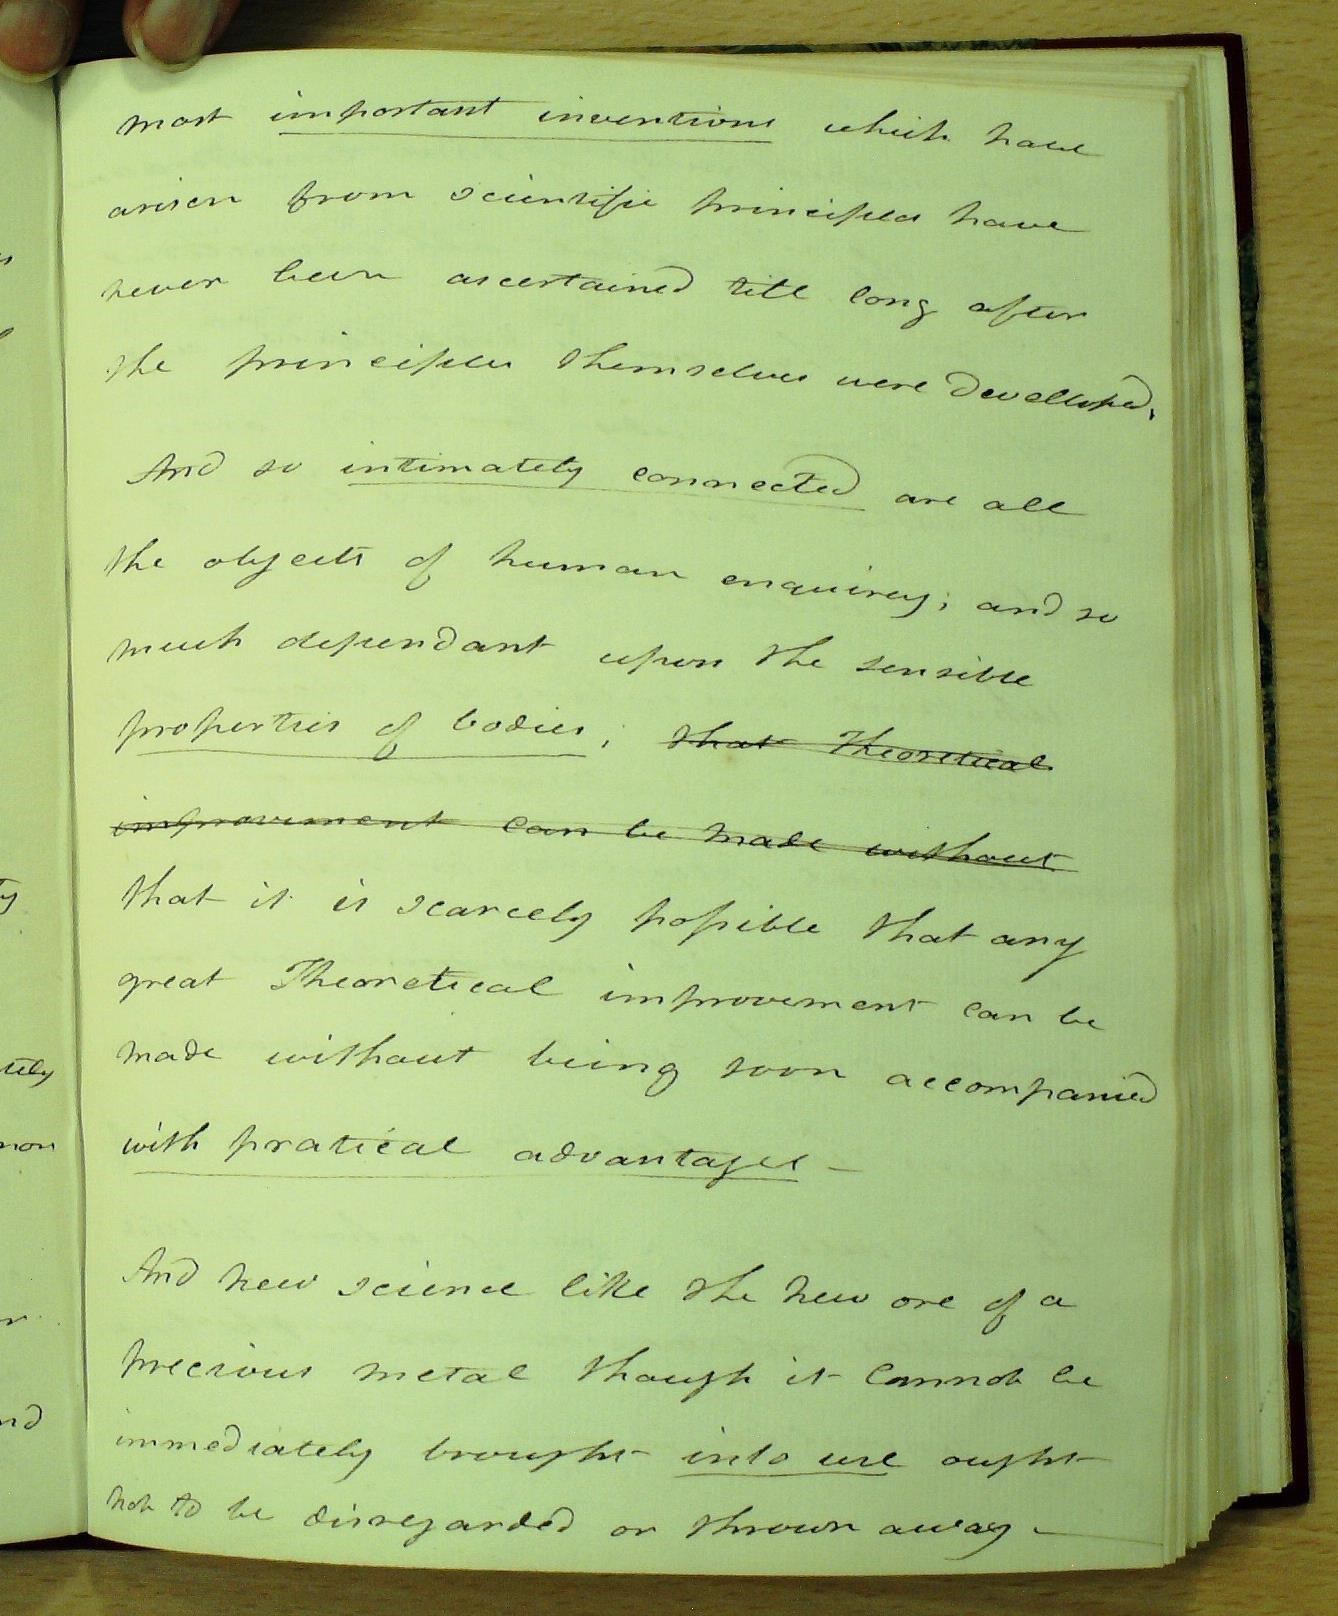 most important inventions which have
arisen from scientific principles have
never been ascertained till long after
the principles themselves were develloped.
And so intimately connected are all
the objects of human enquirey; and so
much dependant upon the sensible
properties of bodies; that Theoretical
improvement can be made without
that it is scarcely possible that any
great Theoretical improvement can be
made without being soon accompanied
with pratical advantages -
And new science like the new ore of a
precious metal though it cannot be
immediately brought into use ought
not to be disregarded or thrown away -